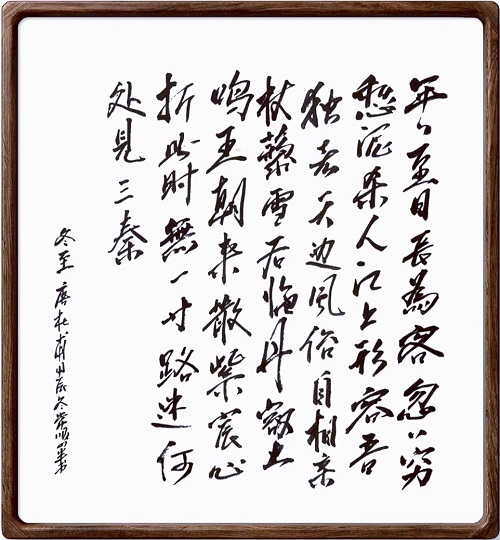 年々至日長為客忽々穷
愁泥杀人江上形容吾
独老天边風俗自相亲
杖藜雪后临丹壑
鸣玉朝来散紫宸心
折此时無一寸路迷何
处見三秦
冬至 唐杜甫 甲辰冬